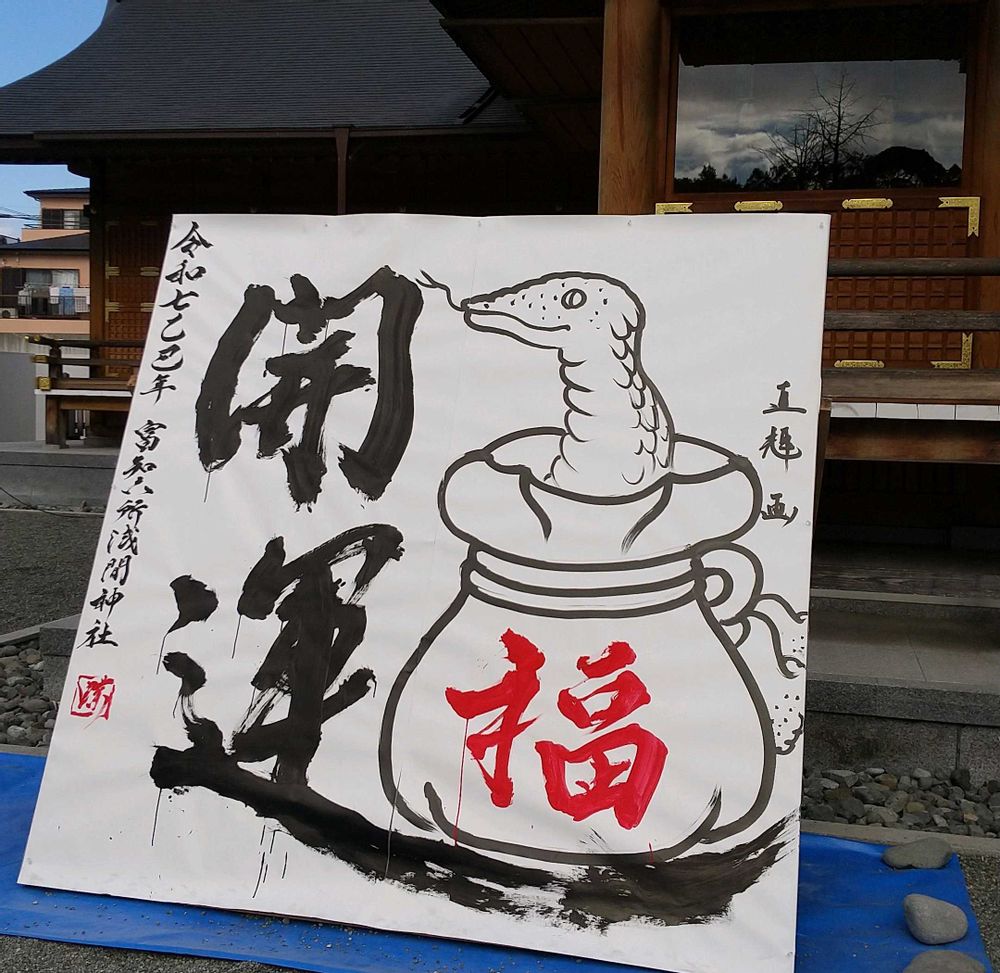 正輝 画
福
開運
令和七乙巳年 富知六所浅間神社